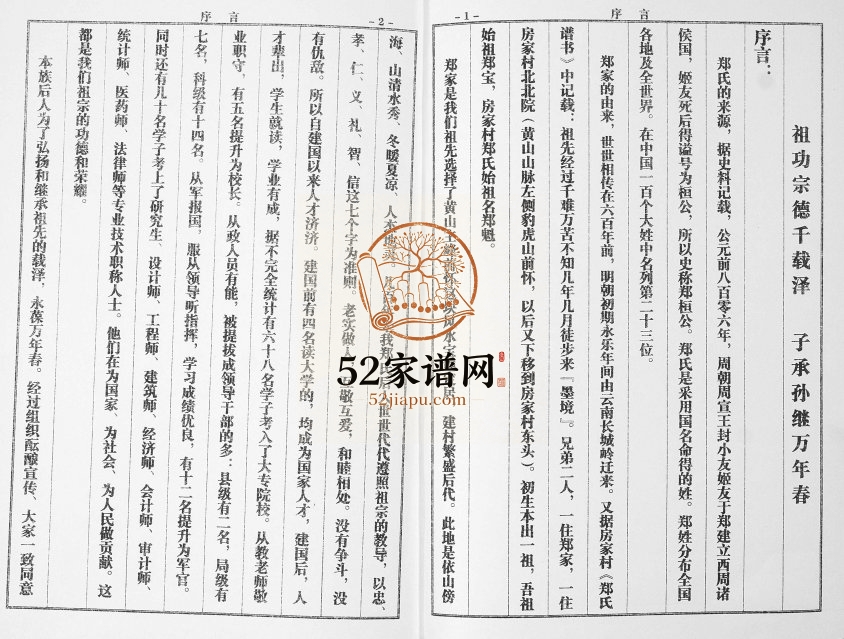 序言
-1-
祖功宗德千载泽 子承孙继万年春
序言:
郑氏的来源,据史料记载,公元前八百零六年,周朝周宣王封小友姬友于郑建立西周诸
侯国,姬友死后得谥号为桓公,所以史称郑桓公。郑氏是采用国名命得的姓。郑姓分布全国
各地及全世界。在中国一百个大姓中名列第二十三位。
郑家的由来,世世相传在六百年前,明朝初期永乐年间由云南长城岭迁来。又据房家村《郑氏
谱书》中记载:祖先经过千难万苦不知几年几月徒步来『墨境』。兄弟二人,一住郑家,一住
房家村北北院(黄山山脉左侧豹虎山前怀,以后又下移到房家村东头)。初生本出一祖,吾祖
始祖郑宝,房家村郑氏始祖名郑魁。
郑家是我们祖先选择了黄山 建村繁盛后代。此地是依山傍
序言
-2-
海、山清水秀、冬暖夏凉、人 我郑氏后人世世代代遵照祖宗的教导,以忠、
孝、仁、义、礼、智、信这七个字为准则。老实做人 敬互爱,和睦相处。没有争斗,没
有仇敌。所以自建国以来人才济济。建国前有四名读大学的,均成为国家人才,建国后,人
才辈出,学生就读,学业有成,据不完全统计有六十八名学子考入了大专院校。从教老师敬
业职守,有五名提升为校长。从政人员有能,被提拔成领导干部的多:县级有二名,局级有
七名,科级有十四名。从军报国,服从领导听指挥,学习成绩优良,有十二名提升为军官。
同时还有几十名学子考上了研究生、设计师、工程师、建筑师、经济师、会计师、审计师、
统计师、医药师、法律师等专业技术职称人士。他们在为国家、为社会、为人民做贡献。这
都是我们祖宗的功德和荣耀。
本族后人为了弘扬和继承祖先的载泽,永葆万年春。经过组织酝酿宣传、大家一致同意
52家谱网
52jiapu.com